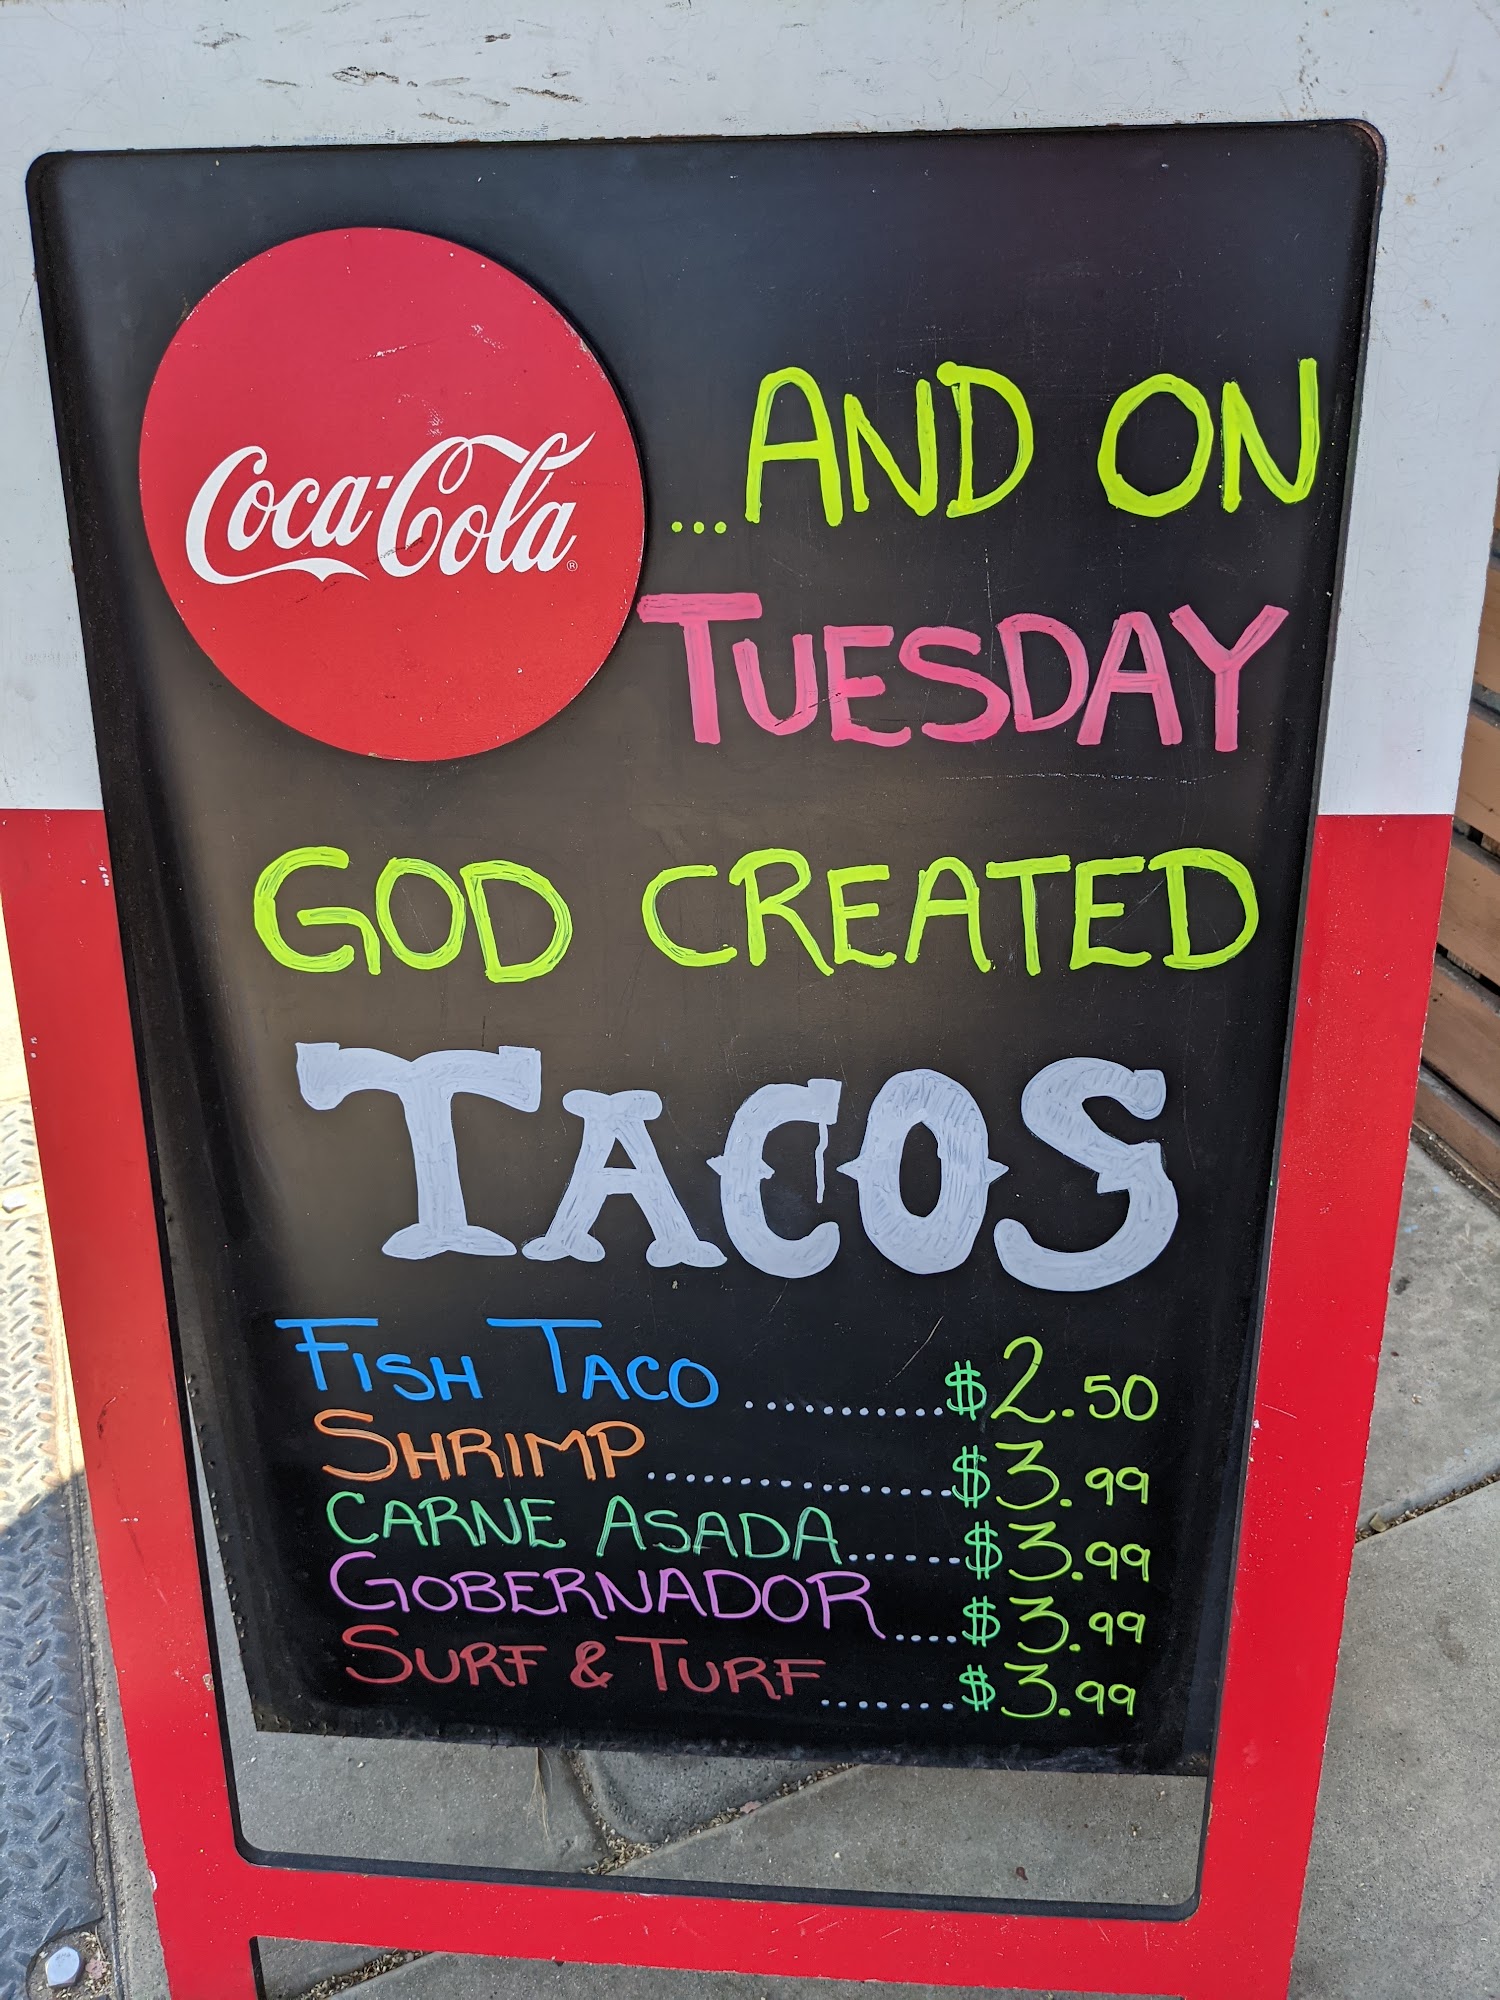 Coca-Cola®
...AND ON
TUESDAY
GOD CREATED
TACOS
FISH TACO ........... $2.50
SHRIMP .............. $3.99
CARNE ASADA ....... $3.99
GOBERNADOR ..... $3.99
SURF & TURF ....... $3.99